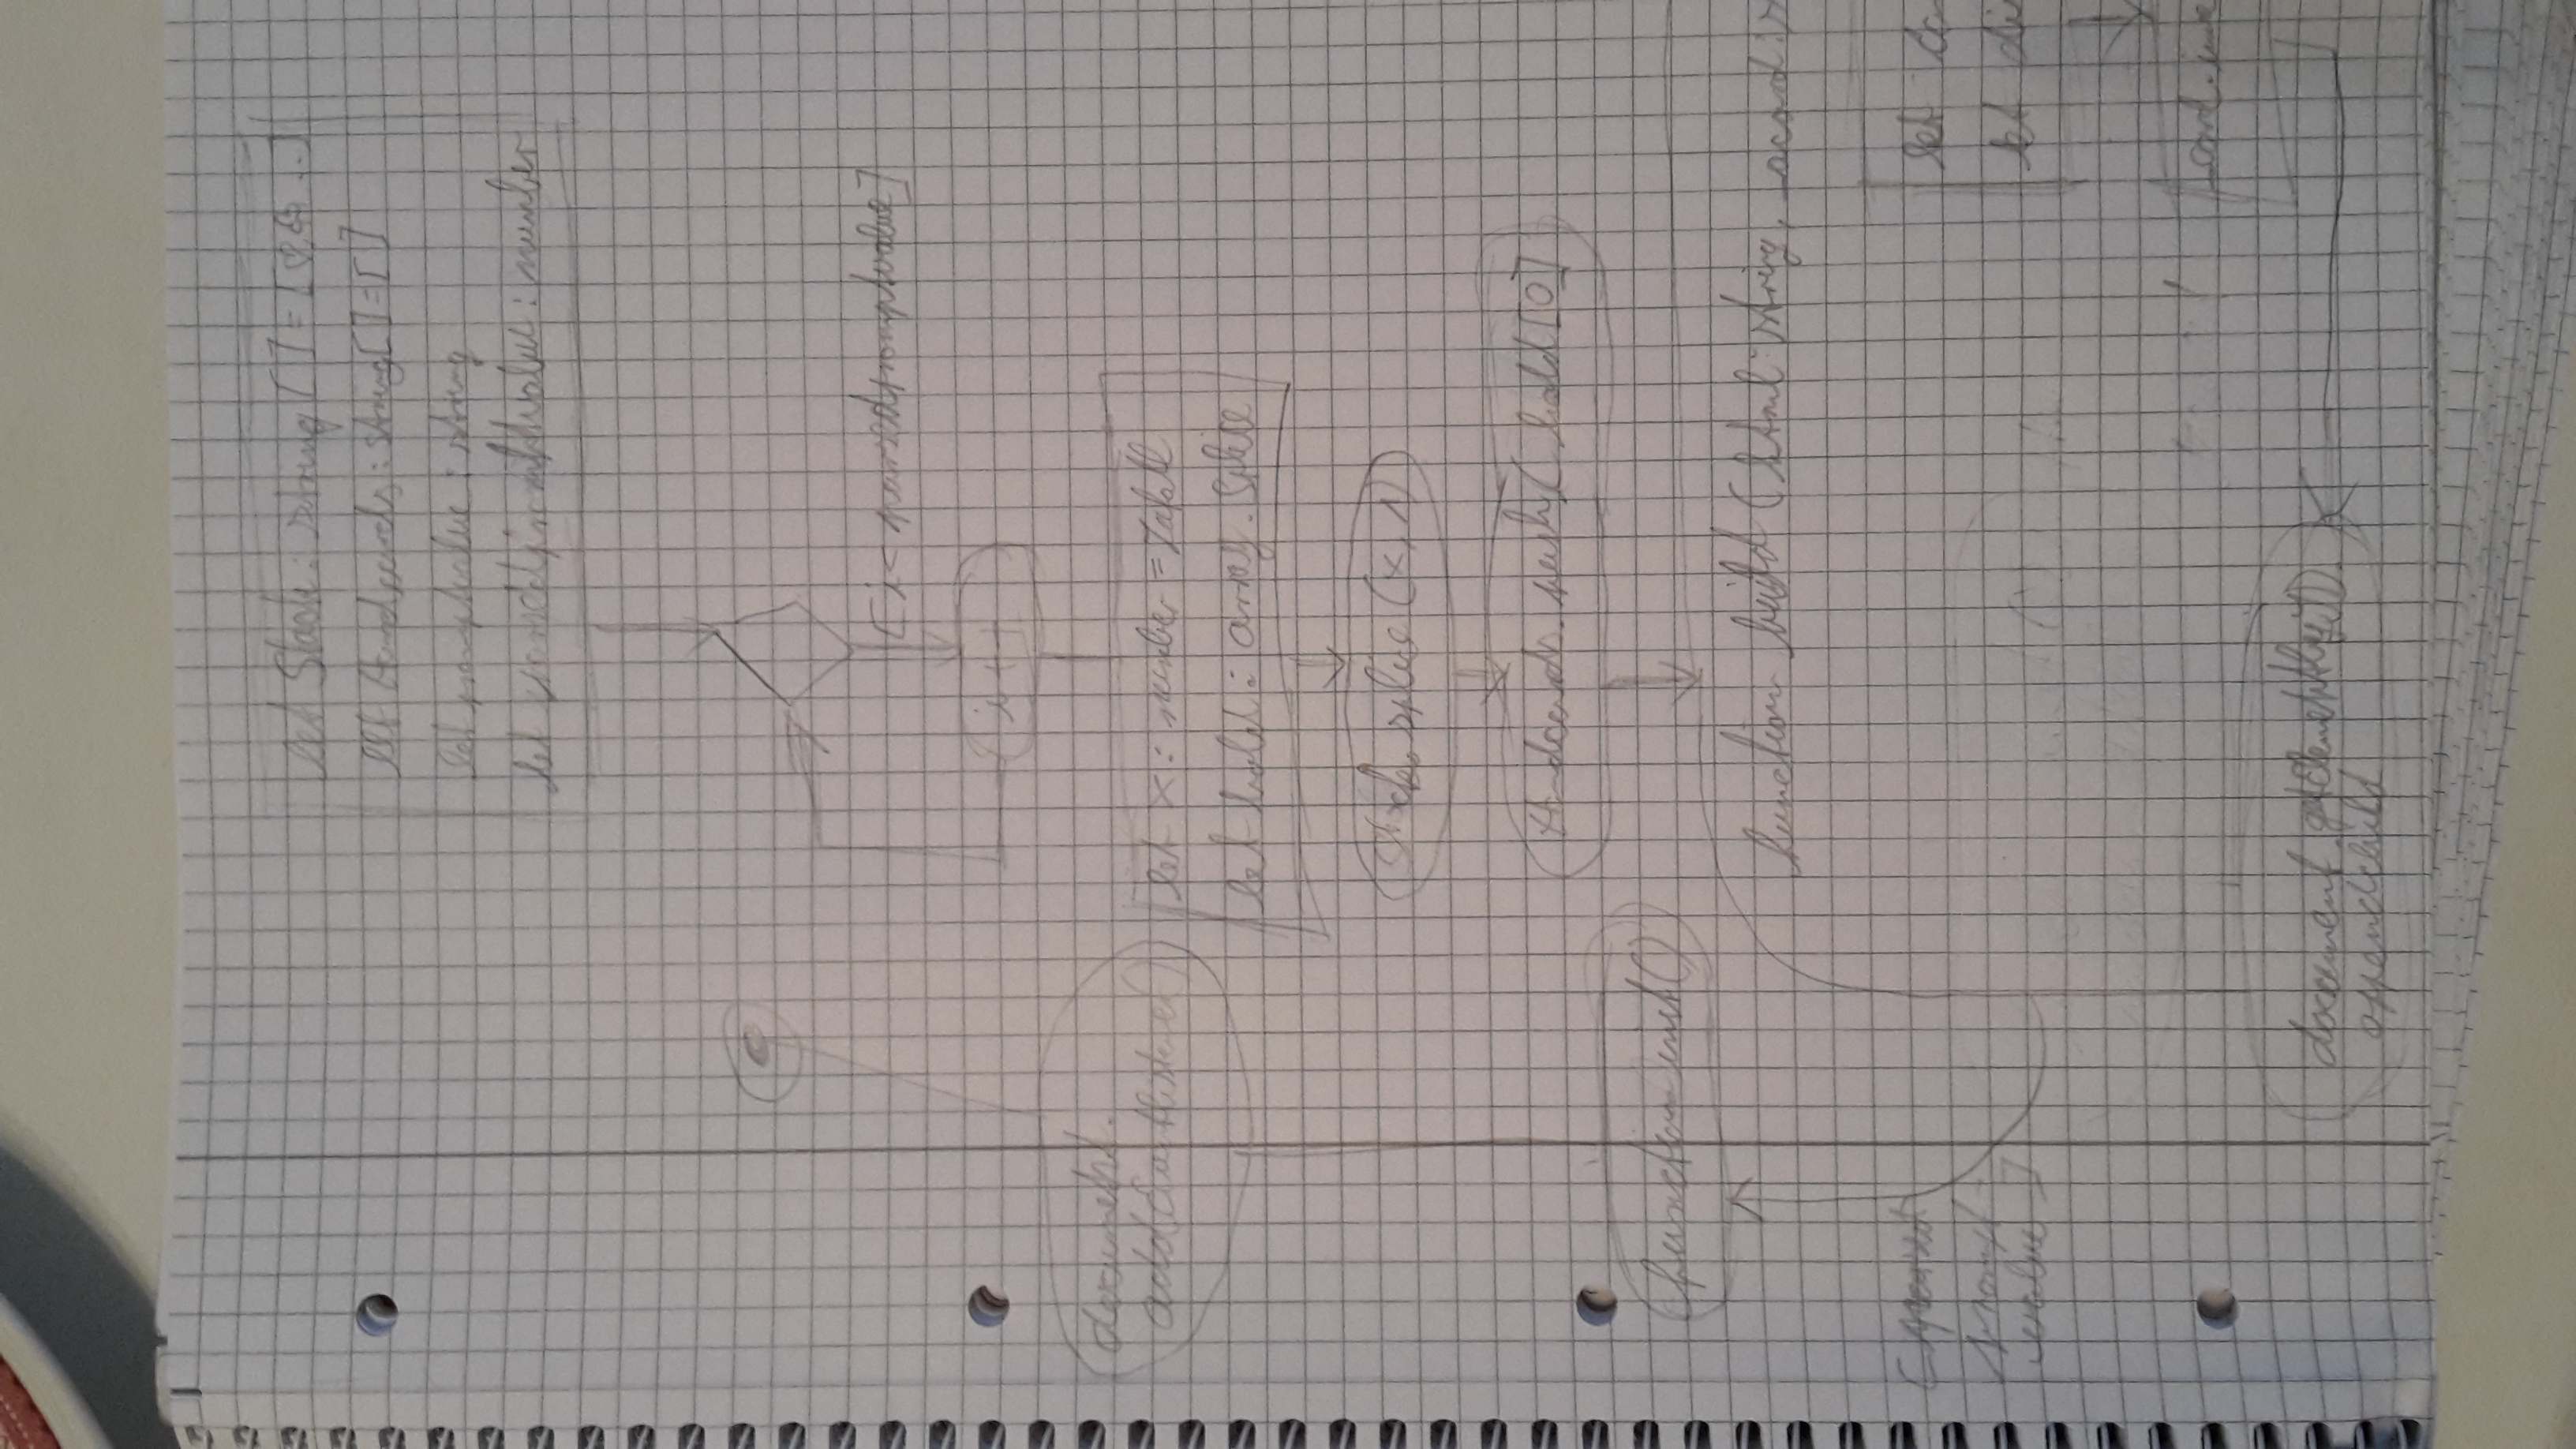 let Stack : string [ ] = [♡, ♧ ...]
let Handcards : string[ ] = [ ]
let promptvalue : string
let parsedpromptvalue : number
[i < parsedpromptvalue]
i++
document.
addEventlistener()
let x : number = Zufall
let hold : array. Splice
Stack.splice (x, 1)
Handcards. push ( hold [0]
function init()
function build ( html : string,
[parsed
prompt-
value ]
let
let di
card.inne
document.getElementbyID.
appendchild